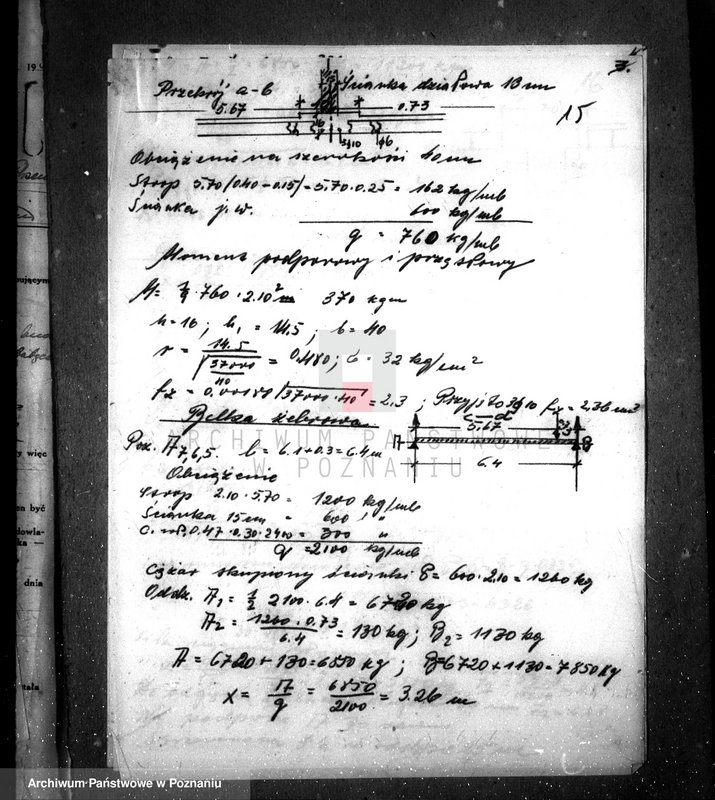 3.
15
Przekrój a-b
Ścianka działowa 13 cm
5.67 0.73
3φ10 φ6
Obciążenie na szerokości 40 cm
Strop 5.70 (0.40-0.15) = 5.70·0.25 = 162 kg/mb
Ścianka j.w. 600 kg/mb
q = 760 kg/mb
Moment podporowy i przęsłowy
M = 760·2.10² 370 kgm
h = 16; h₁ = 14.5; b = 40
r = 14.5 / √37000/40 = 0.480; σ = 32 kg/cm²
fz = √37000·40 = 2.3; Przyjęto 3φ10 fz = 2,36 cm²
Belka żebrowa
c-d
5.67
Poz. 7,6,5. l = 6.1+0.3 = 6.4 m
A B
6.4
Obciążenie
Strop 2.10·5.70 = 1200 kg/mb
Ścianka 15 cm = 600 " "
c. wł. 0.47·0.30·2400 = 300 "
q = 2100 kg/mb
Ciężar skupiony ścianki P = 600·2.10 = 1260 kg
Oddz. A₁ = ½ 2100·6.4 = 6720 kg
A₂ = 1260·0.73 / 6.4 = 130 kg; B₂ = 1130 kg
A = 6720+130 = 6850 kg; B = 6720+1130 = 7850 kg
x = A/q = 6850/2100 = 3.26 m
ARCHIWUM PAŃSTWOWE
W POZNANIU
19
więc
en być
dnia
Archiwum Państwowe w Poznaniu